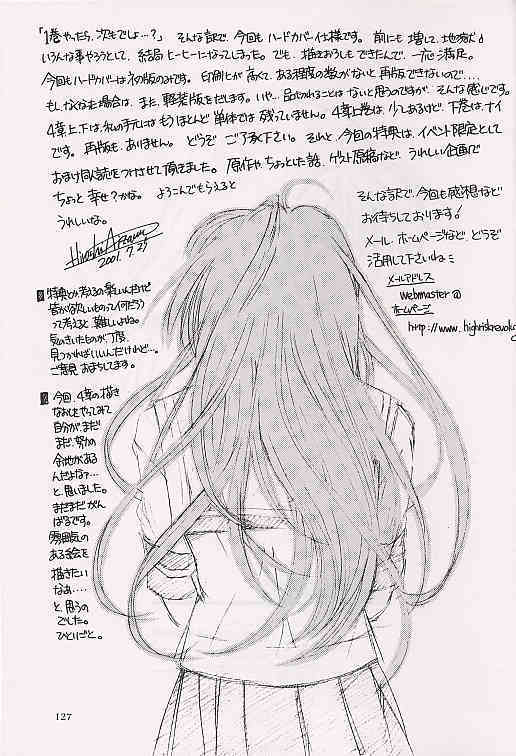 「1巻やったら、次もでしょ…?」 そんな訳で、今回もハードカバー仕様です。 前にも増して、地獄だ♪
いろんな事やろうとして、結局 ヒーヒーになってしまった。でも、描きおろしもできたんで、一応 満足。
今回もハードカバーは初版のみです。 印刷ヒが高くて、ある程度の数がないと再版できないので‥‥
もし、なくなった場合は、また、軽装版をだします。いや… 品切れることは ないと思うのですが、そんな感じです。
4章上、下は、私の手元にはもうほとんど単体では残っていません。4章上巻は、少しあるけど、下巻は、ナイ
です。再版も、ありません。 どうぞ ご了承下さい。 それと、今回の特典は、イベント限定として
おまけ同人誌をつけさせて頂きました。 原作や、ちょっとした話、ゲスト原稿など、うれしい企画で
ちょっと 幸せ?かな。 よろこんでもらえると
うれしいな。
2001. 7. 29
そんな訳で、今回も感想など
お待ちしております!
メール、ホームページなど、どうぞ
活用して下さいね
メールアドレス
webmaster@
ホームページ
http://www.highrisk
特典とか考えるの楽しいんだけど
皆が欲しいものって何だろう
って考えると、難しいよね。
気のきいたものが、丁度、
見つかればいいんだけれど…。
ご意見、おまちしてます。
今回、4章の描き
なおしをやってみて
自分が、まだ
まだ、努力の
余地がある
んだよな?…
と、思いました。
まだまだ がん
ばるです。
雰囲気の
ある絵を
描きたい
なぁ‥‥
と、思うの
でした。
ひとりごと。
127